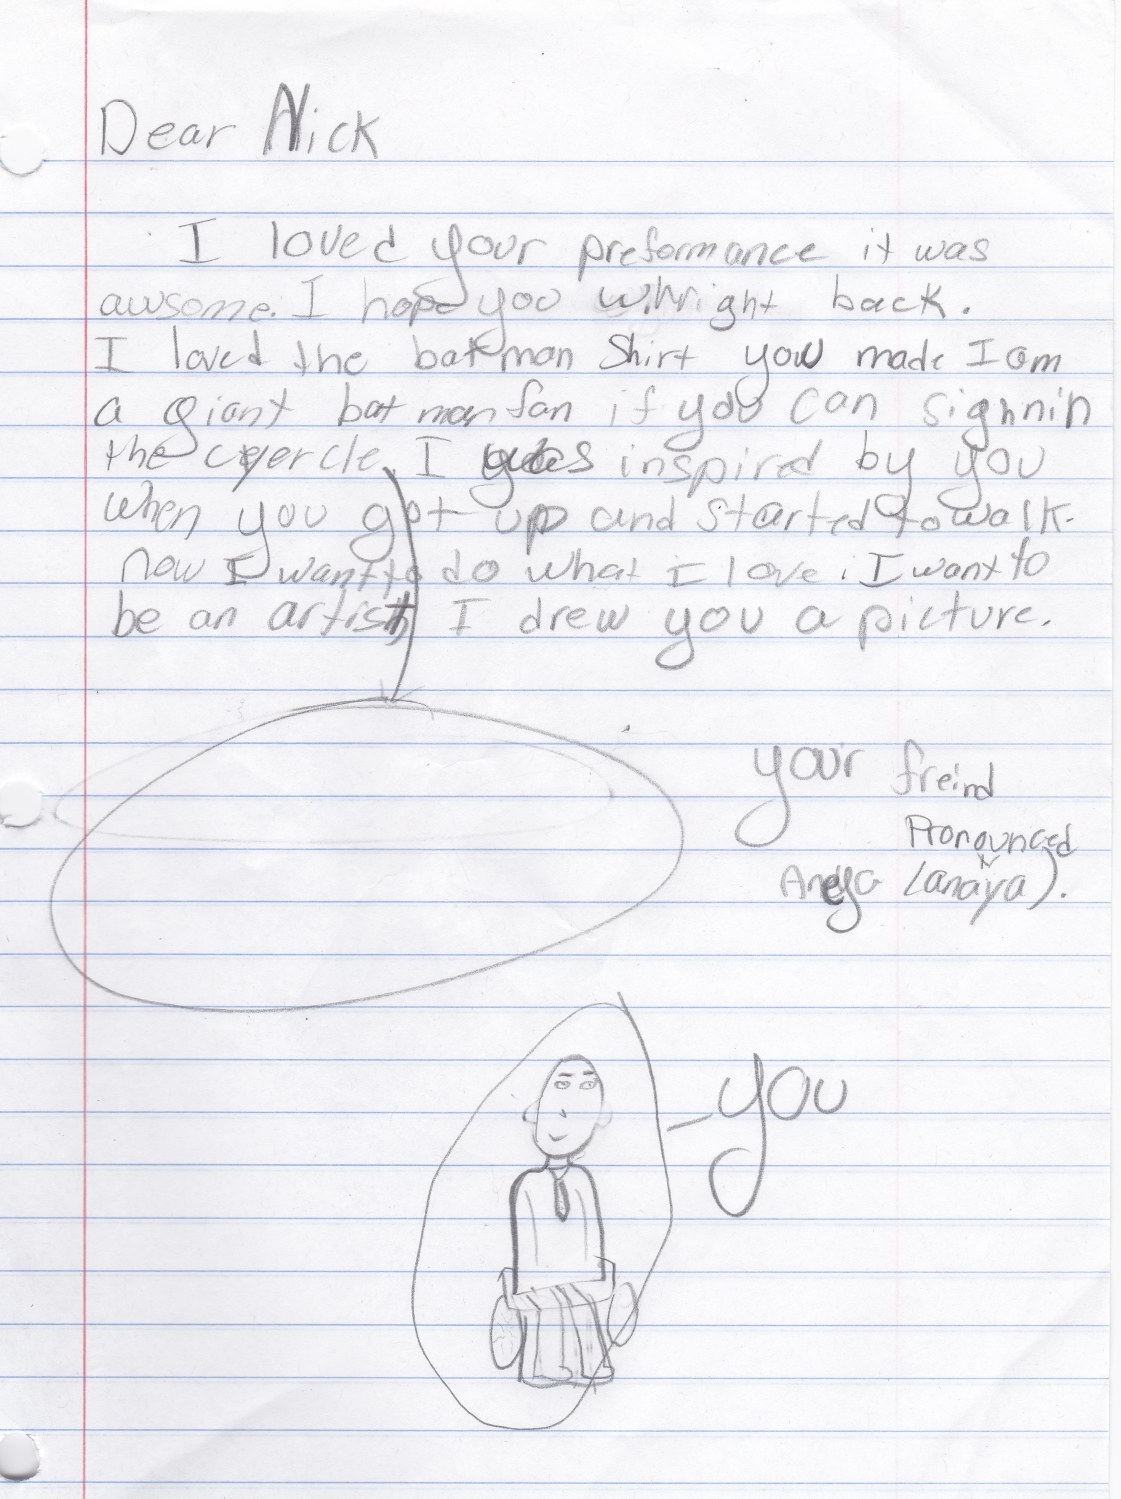 Dear Nick
I loved your preformance it was
awsome. I hope you whright back.
I loved the batman shirt you made I am
a giant bat man fan if you can sighnin
the cyercle. I was inspired by you
when you got up and started to walk.
now I want to do what I love. I want to
be an artist I drew you a picture.
your freind
Pronounced
Aneya (anaya).
you